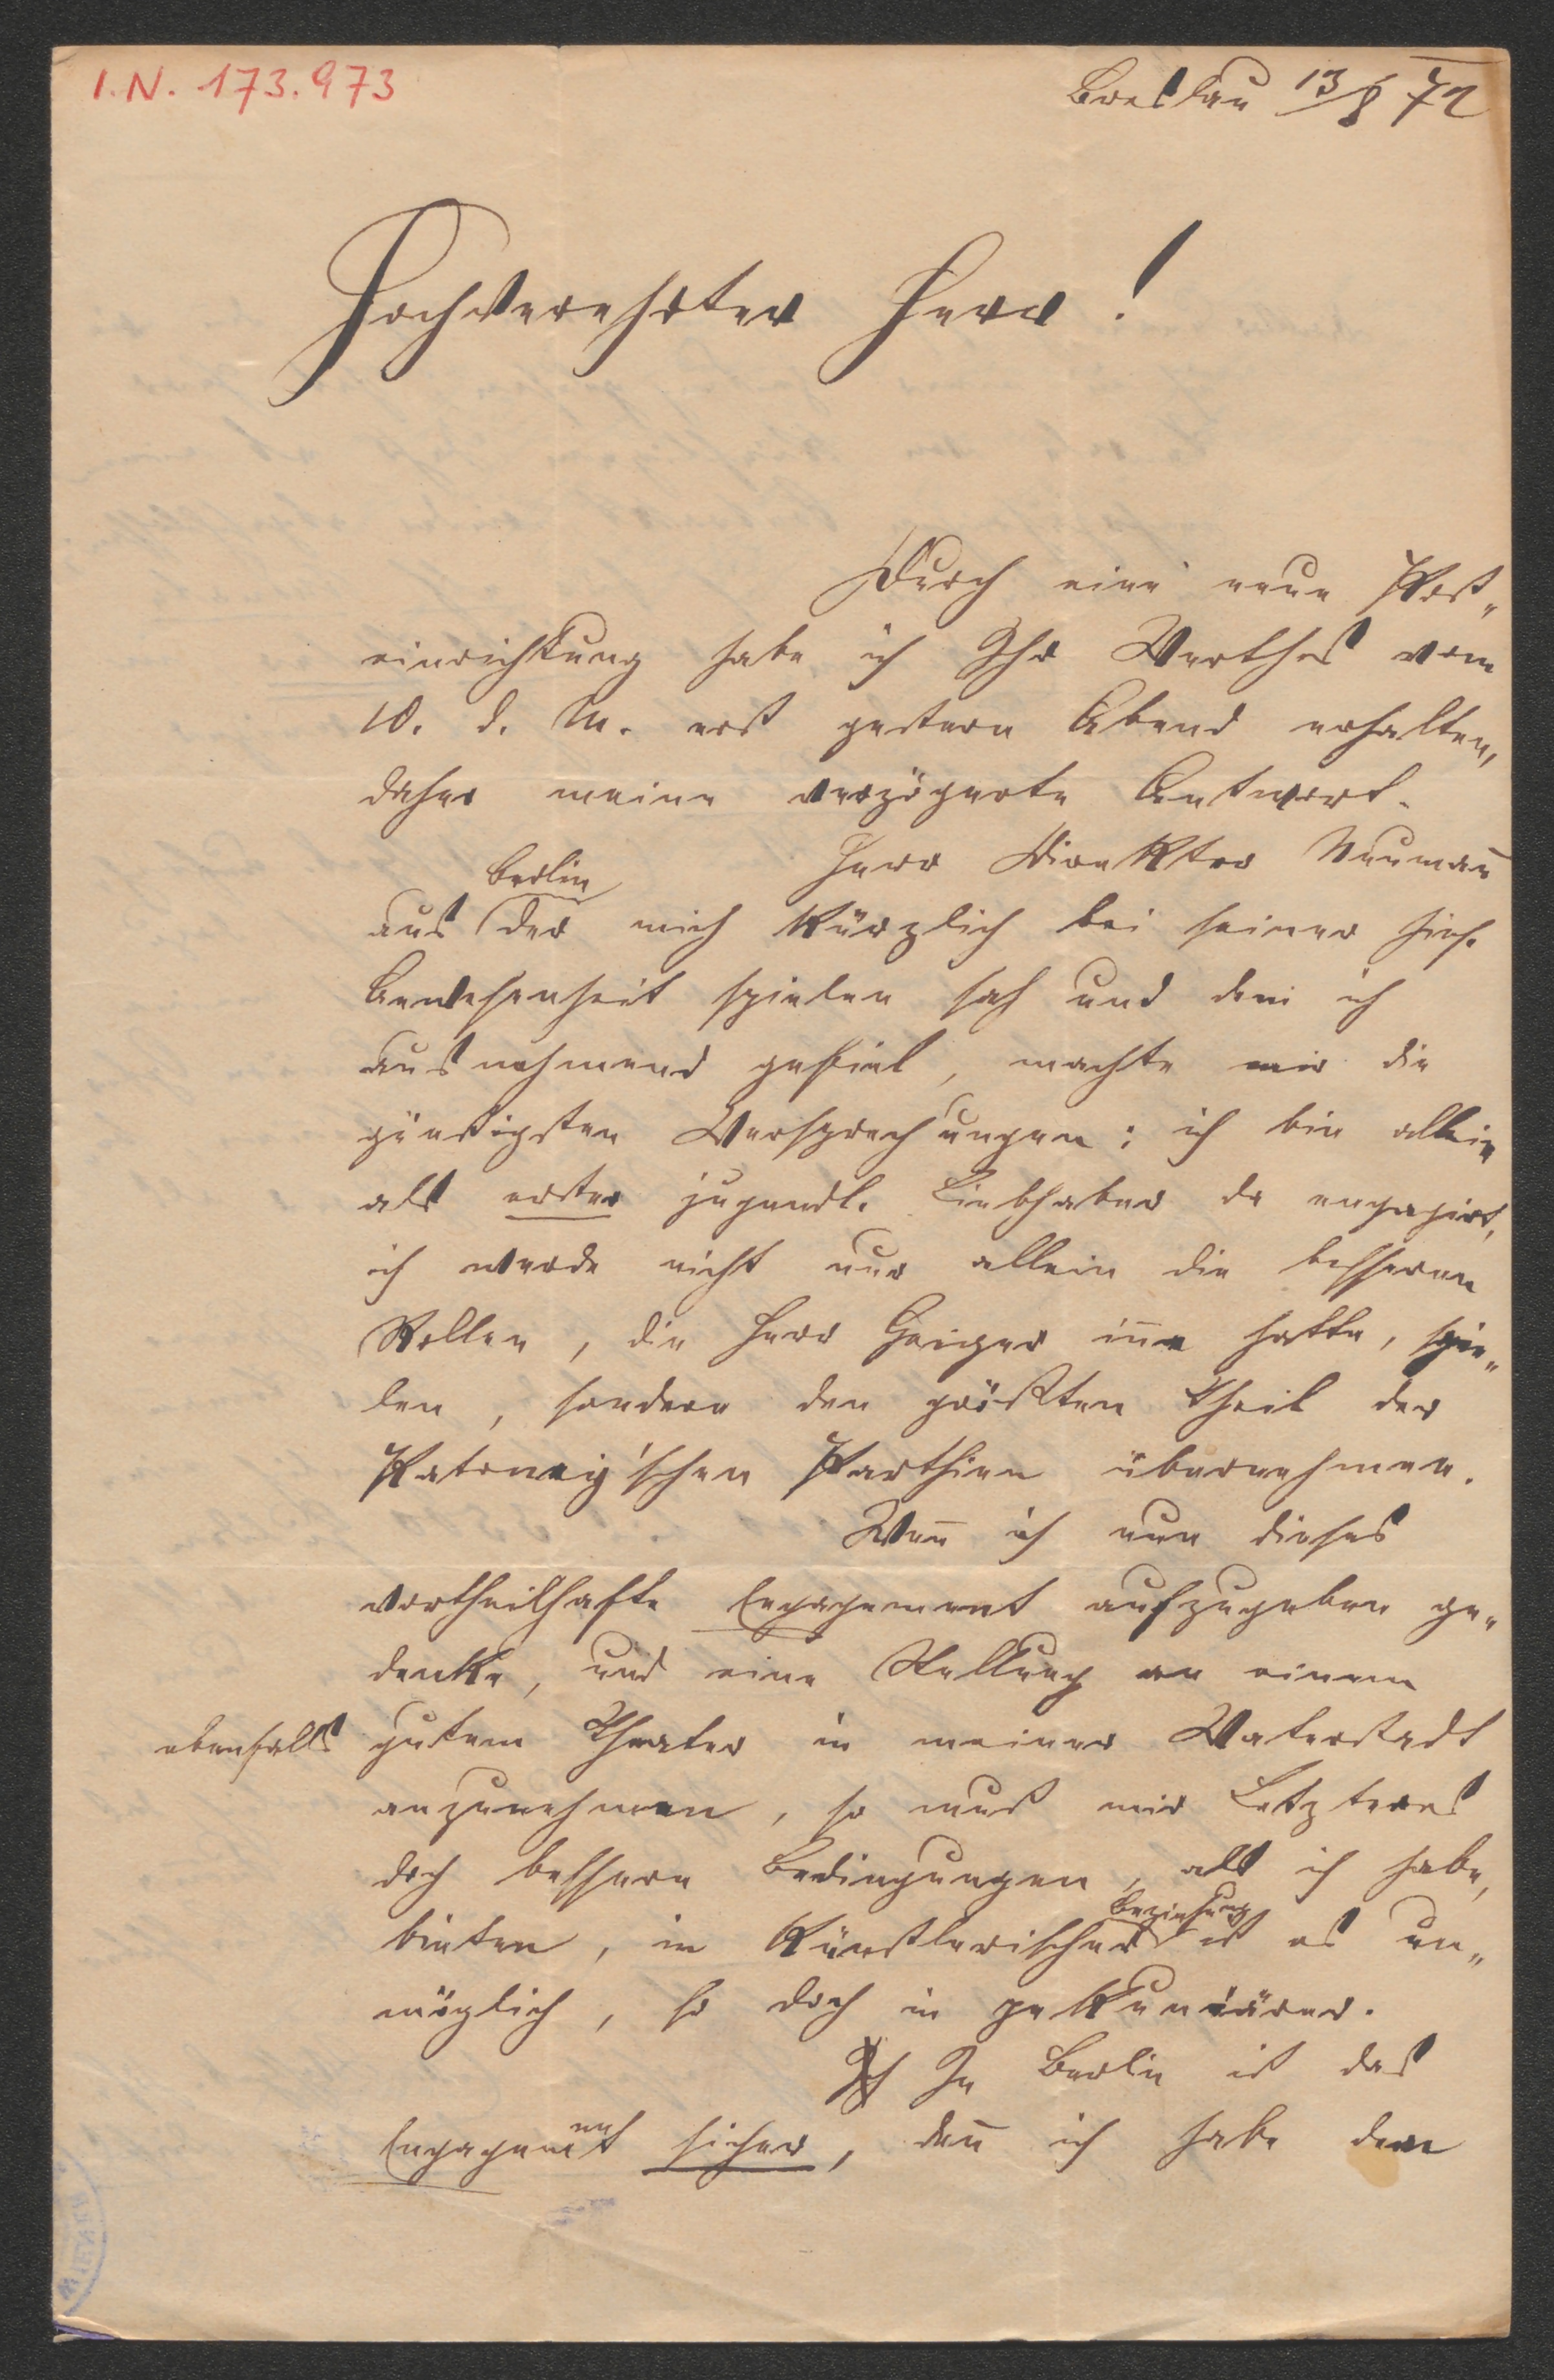 I.N. 173.973
Breslau 13/8 72
Hochverehrter Herr!
Durch eine neue Post„
einrichtung habe ich Ihr Werthes vom
10. d. M. erst gestern Abend erhalten,
daher meine verzögerte Antwort.
Herr Direktor Neumañ
Berlin
aus der mich kürzlich bei seiner hies.
Anwesenheit spielen sah und dem ich
ausnehmend gefiel, machte mir die
günstigsten Versprechungen: ich bin allein
als erster jugendl. Liebhaber da engagirt,
ich werde nicht nur allein die besseren
Rollen, die Herr Geiger iñe hatte, spie„
len, sondern den größten Theil der
Patonay'schen Parthien übernehmen.
Weñ ich nun dieses
vortheilhafte Engagement aufzugeben ge„
denke, und eine Stellung an einem
ebenfalls gutem Theater in meiner Vaterstadt
anzunehmen, so muß mir Letzteres
doch bessere Bedingungen, als ich habe,
Beziehung
bieten, in künstlerischer ist es un„
möglich, so doch in pekuniärer.
In Berlin ist das
Engagement sicher, deñ ich habe dem